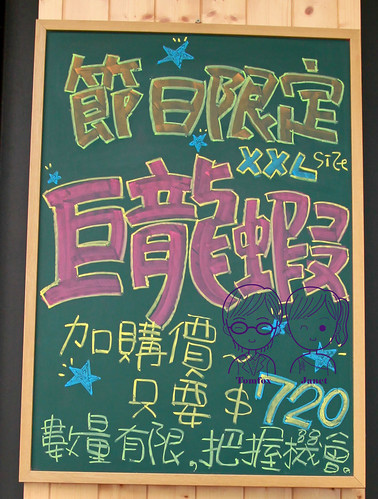 節日限定
XXL size
巨龍蝦
加購價~
Tomfox Janet
只要$720
數量有限,把握機會。